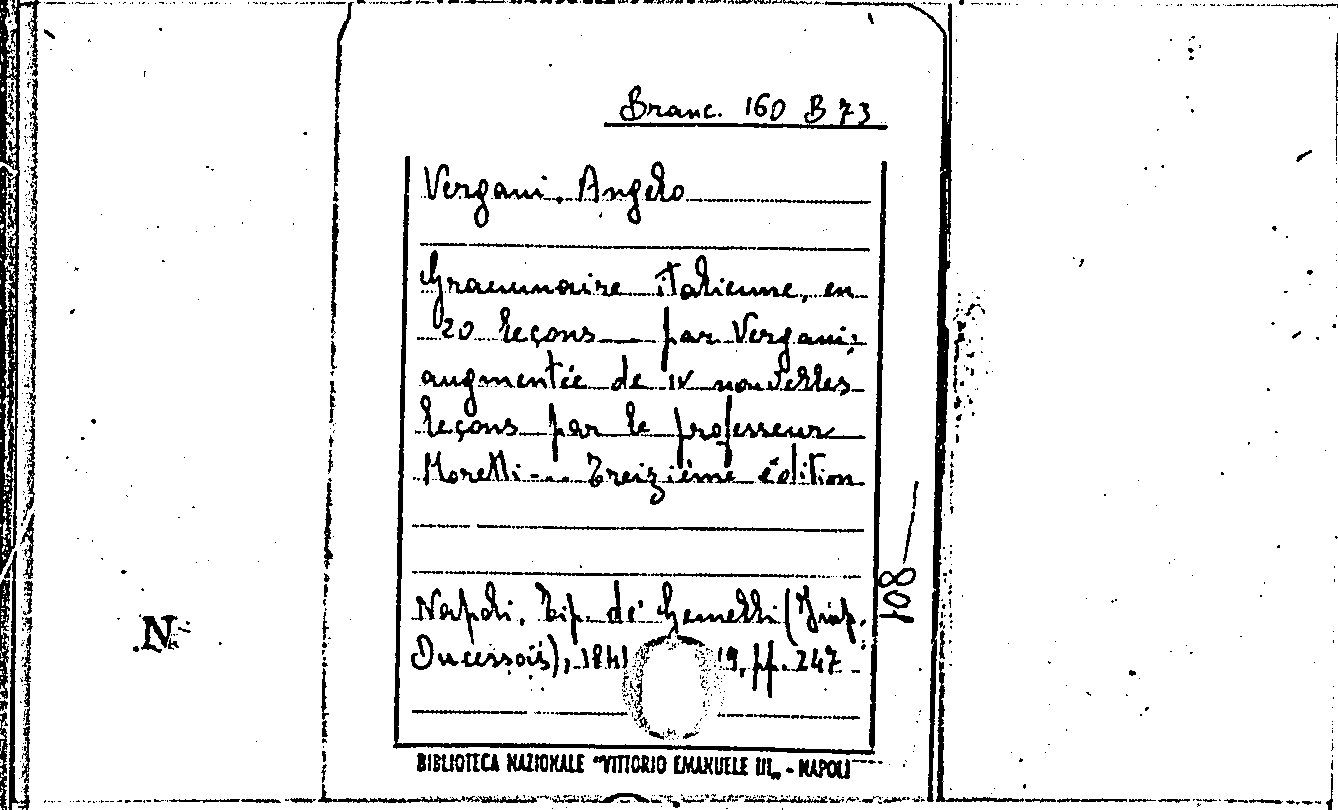 Branc. 160 B 73
Vergani, Angelo
Grammaire italienne, en
20 leçons ___ par Vergani;
augmentée de IV nouvelles
leçons par le professeur
Moretti... Treizième édition
Napoli, Tip. de' Gemelli (Imp.
Ducessois), 1841 19, pp. 247
BIBLIOTECA NAZIONALE "VITTORIO EMANUELE III" - NAPOLI
108
N